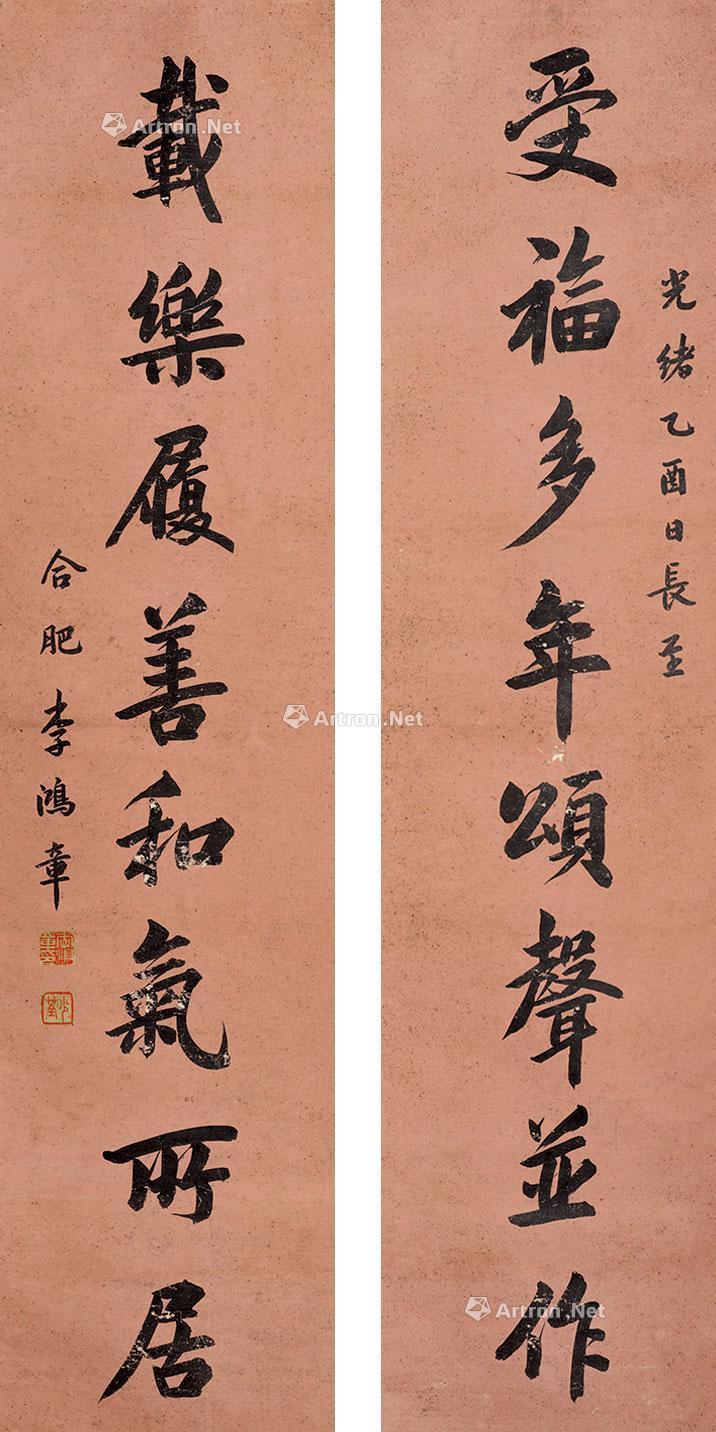 光緒乙酉日長至
受福多年頌聲並作
載樂履善和氣所居
合肥李鴻章
Artron.Net
Artron.Net
Artron.Net